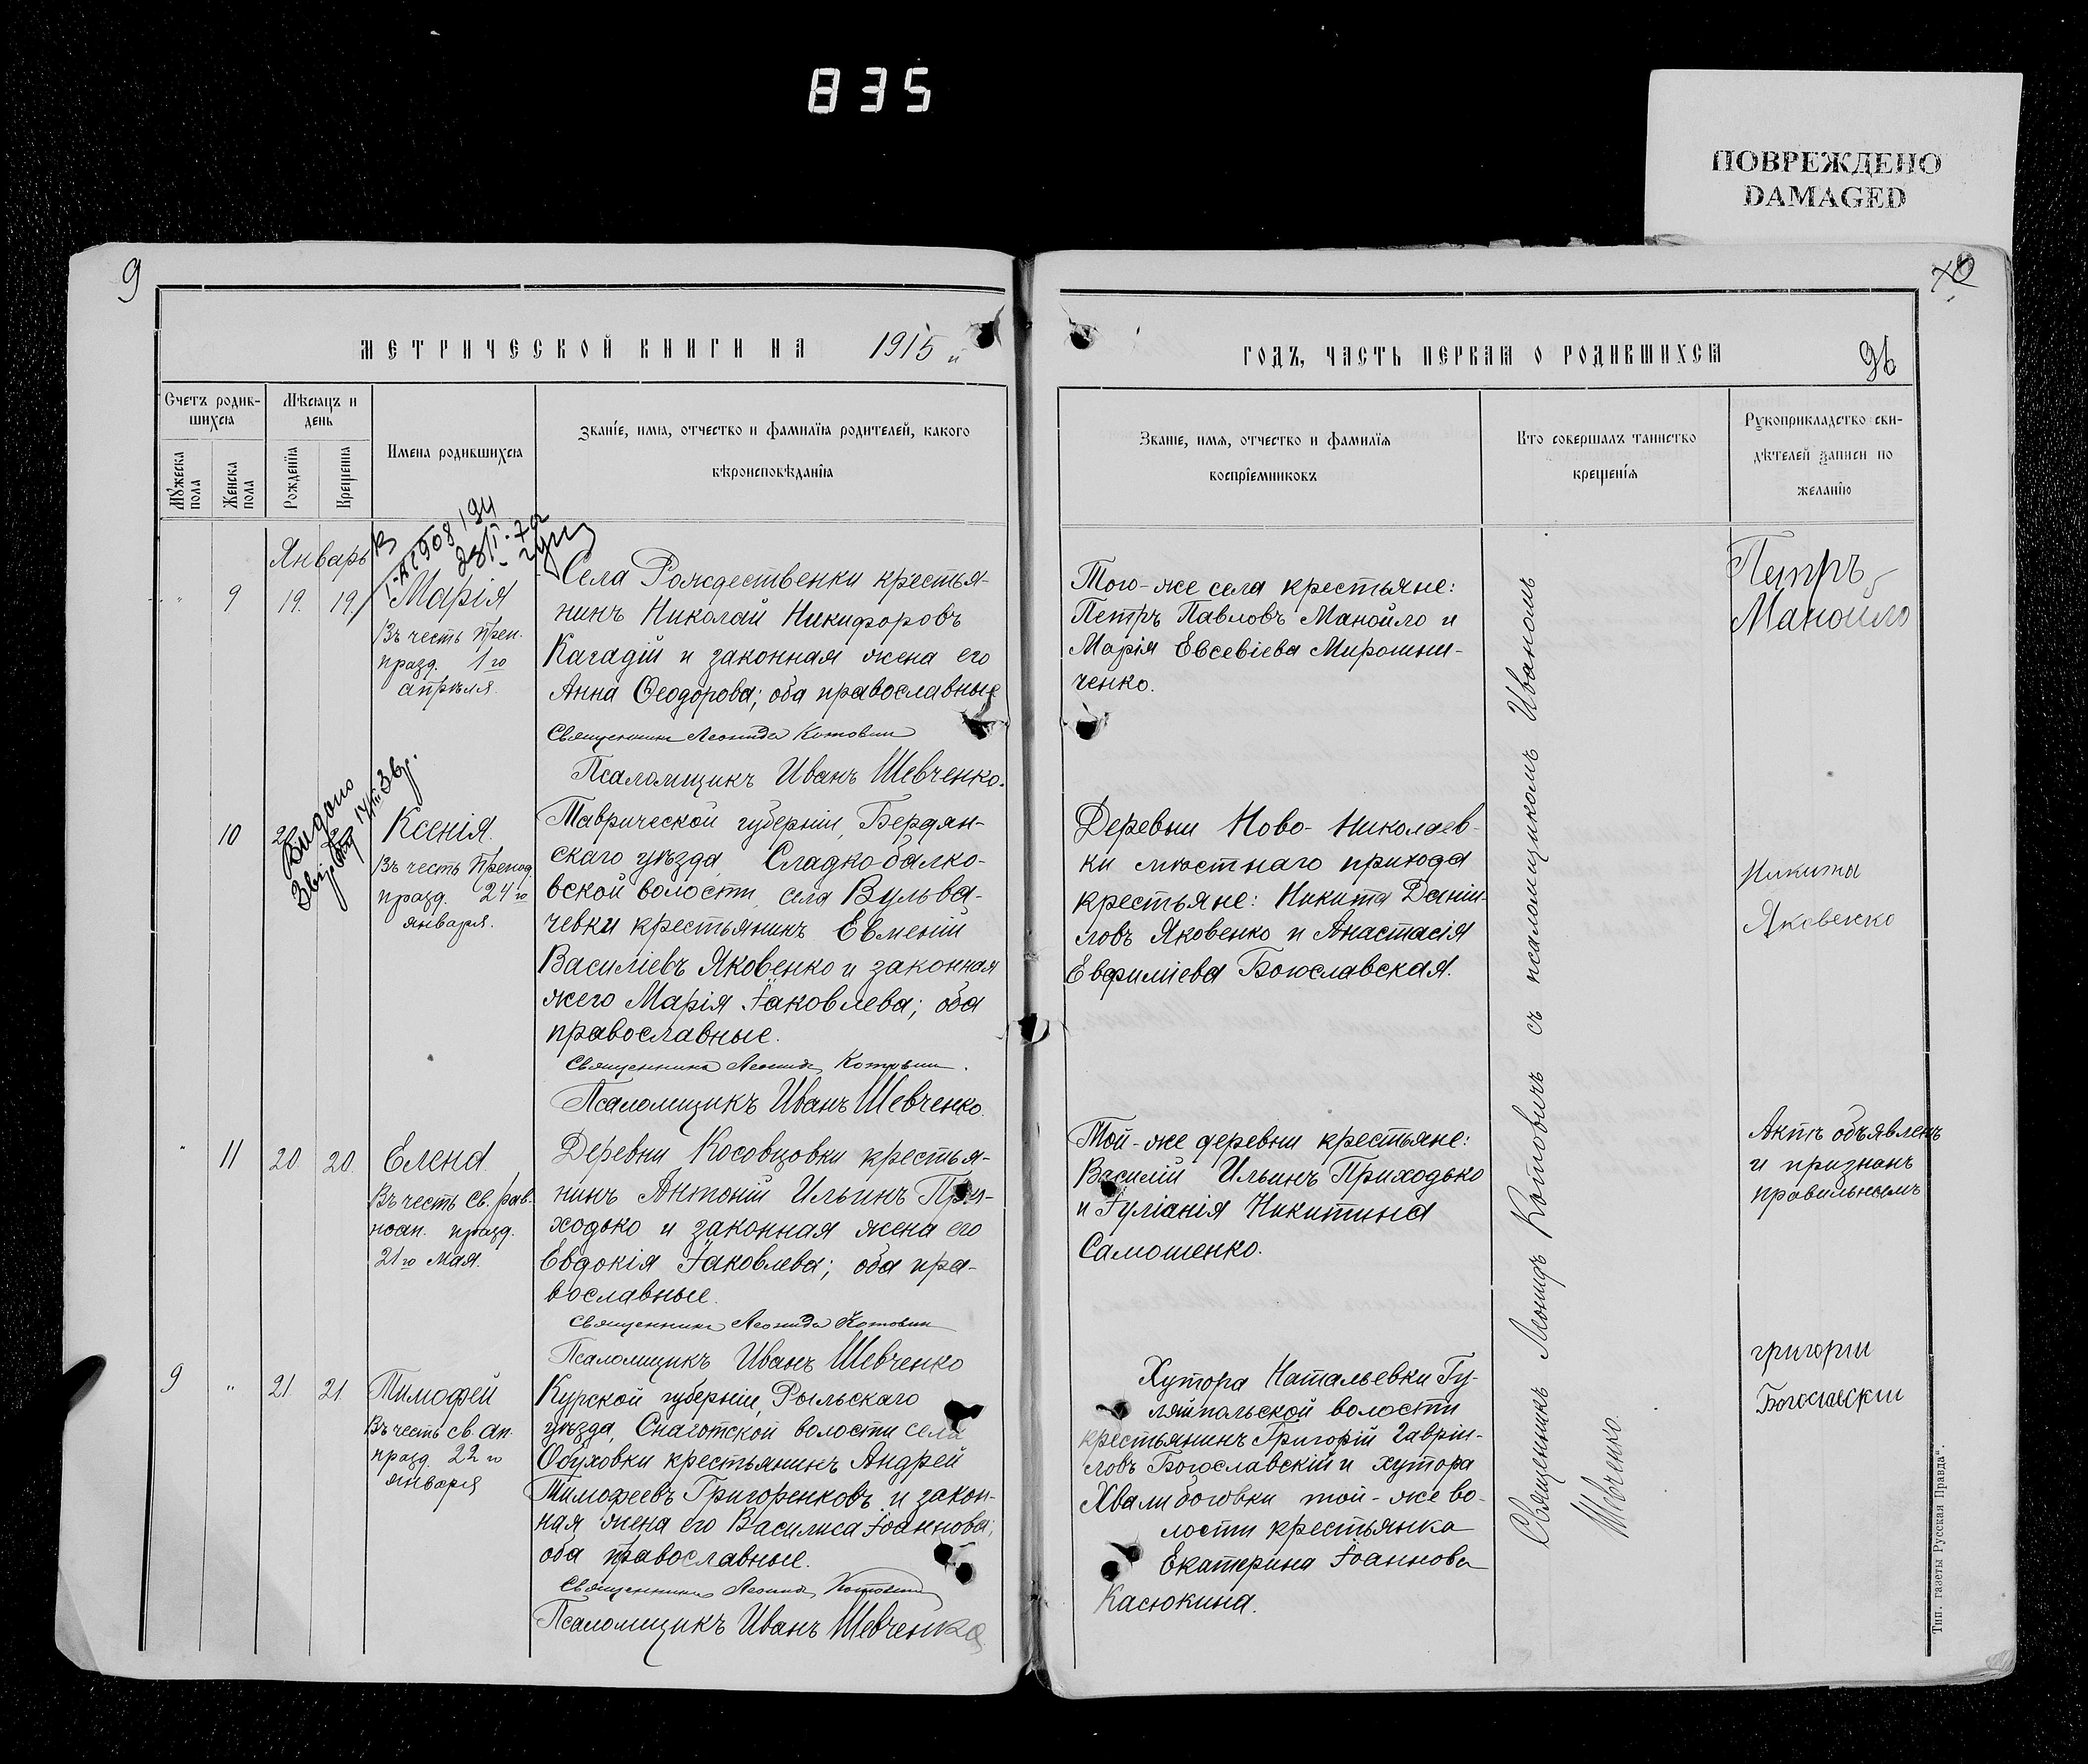 835
ПОВРЕЖДЕНО
DAMAGED
9
МЕТРИЧЕСКОЙ КНИГИ НА 1915 й
Счетъ родившихся
Мѣсяцъ и день
Имена родившихся
Званіе, имя, отчество и фамилія родителей, какого
вѣроисповѣданія
Мужеска пола
Женска пола
Рожденія
Крещенія
Январь
9 19. 19.
Марія
Въ честь Преп.
празд. 1го
апрѣля.
Села Рождественки крестья-
нинъ Николай Никифоровъ
Кагадій и законная жена его
Анна Ѳеодорова; оба православные
Священникъ Леонидъ Котович
Псаломщикъ Иванъ Шевченко.
Видано
10
Ксенія.
Въ честь Препод.
празд. 24го
января.
Таврической губерніи, Бердян-
скаго уѣзда, Сладкобалко-
вской волости, села Вульва-
чевки крестьянинъ Евмений
Василіевъ Яковенко и законная
жего Марія Іаковлева; оба
православные.
Священникъ Леонидъ Котович.
Псаломщикъ Иванъ Шевченко.
" 11 20 20.
Елена.
Въ честь св. рав-
ноап. празд.
21го мая.
Деревни Косовцовки крестья-
нинъ Антоній Ильинъ При-
ходько и законная жена его
Евдокія Іаковлева; оба пра-
вославные.
Священникъ Леонидъ Котович
Псаломщикъ Иванъ Шевченко
9 " 21 21
Тимофей
Въ честь св. ап.
празд. 22го
января
Курской губерніи, Рыльскаго
уѣзда, Снаготской волости села
Обуховки крестьянинъ Андрей
Тимофеевъ Григоренковъ и закон-
ная жена его Василиса Іоаннова;
оба православные.
Священникъ Леонидъ Котович
Псаломщикъ Иванъ Шевченко
ГОДЪ, ЧАСТЬ ПЕРВАЯ О РОДИВШИХСЯ
96
Званіе, имя, отчество и фамилія
воспріемниковъ
Кто совершалъ таинство
крещенія
Рукоприкладство сви-
дѣтелей записи по
желанію
Того-же села крестьяне:
Петръ Павловъ Манойло и
Марія Евсевіева Мирошни-
ченко.
Деревни Ново-Николаев-
ки мѣстнаго прихода
крестьяне: Никита Даніи-
ловъ Яковенко и Анастасія
Евфиміева Богославская.
Той-же деревни крестьяне:
Василій Ильинъ Приходько
и Іуліанія Никитина
Самошенко.
Хутора Натальевки Гу-
ляйпольской волости
крестьянинъ Григорій Гавріи-
ловъ Богославскій и хутора
Хвалибоговки той-же во-
лости крестьянка
Екатерина Іоаннова
Касюкина.
Священникъ Леонидъ Котовичъ съ псаломщикомъ Иваномъ
Шевченко.
Петръ
Манойло
Никита
Яковенко
Актъ объявленъ
и признанъ
правильнымъ
григорий
Богославский
Тип. газеты „Русская Правда".